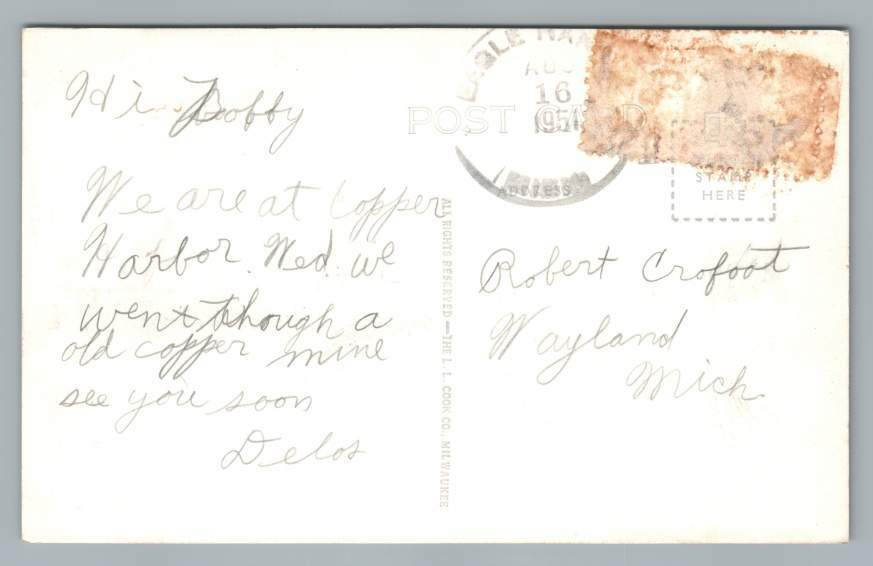 Hi Bobby
We are at Copper
Harbor. Wed. we
went though a
old copper mine
see you soon
Delos
EAGLE HAR
AUG
16
POST CARD
ADDRESS
STAMP
HERE
ALL RIGHTS RESERVED—THE L. L. COOK CO., MILWAUKEE
Robert Crofoot
Wayland
Mich.